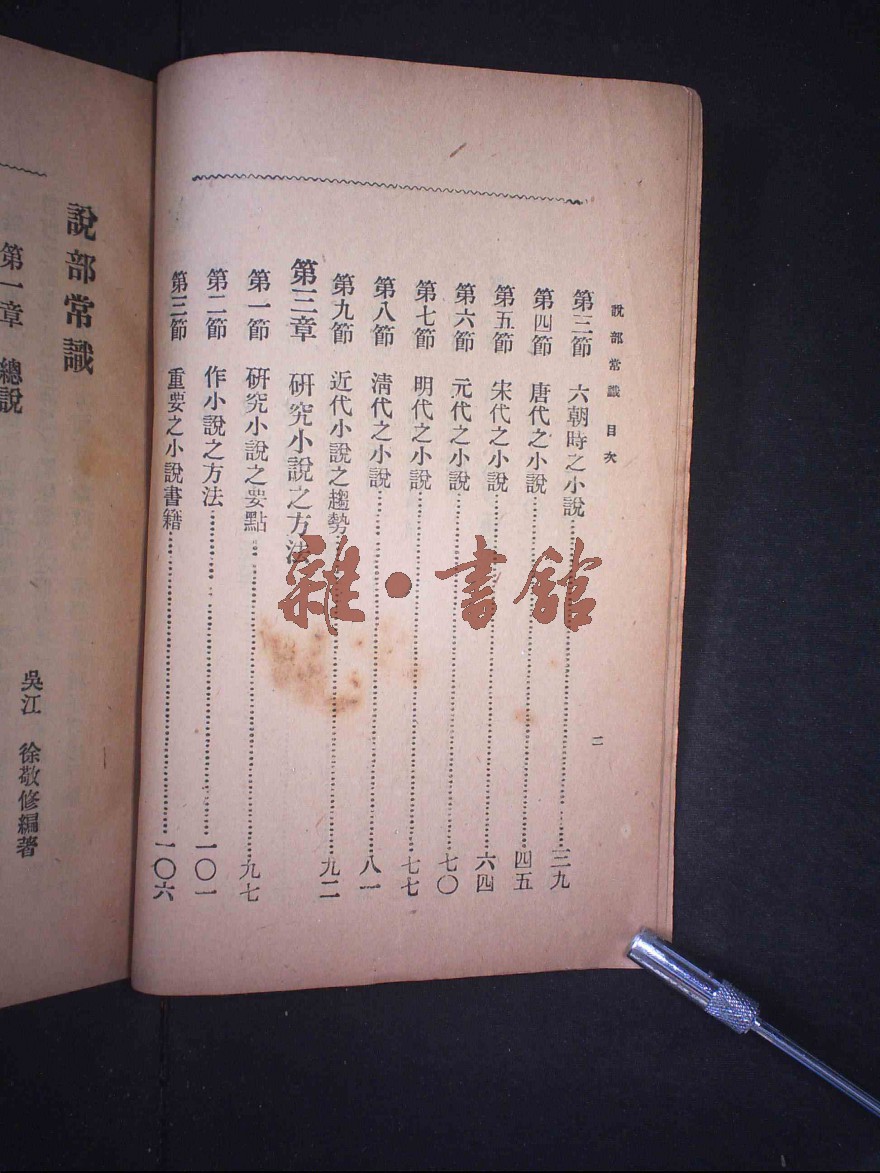 說部常識 目次
二
第三節 六朝時之小說……三九
第四節 唐代之小說……四五
第五節 宋代之小說……六四
第六節 元代之小說……七〇
第七節 明代之小說……七七
第八節 清代之小說……八一
第九節 近代小說之趨勢……九二
第三章 研究小說之方法
第一節 研究小說之要點……九七
第二節 作小說之方法……一〇一
第三節 重要之小說書籍……一〇六
說部常識
吳江 徐敬修編著
第一章 總說
雜·書館